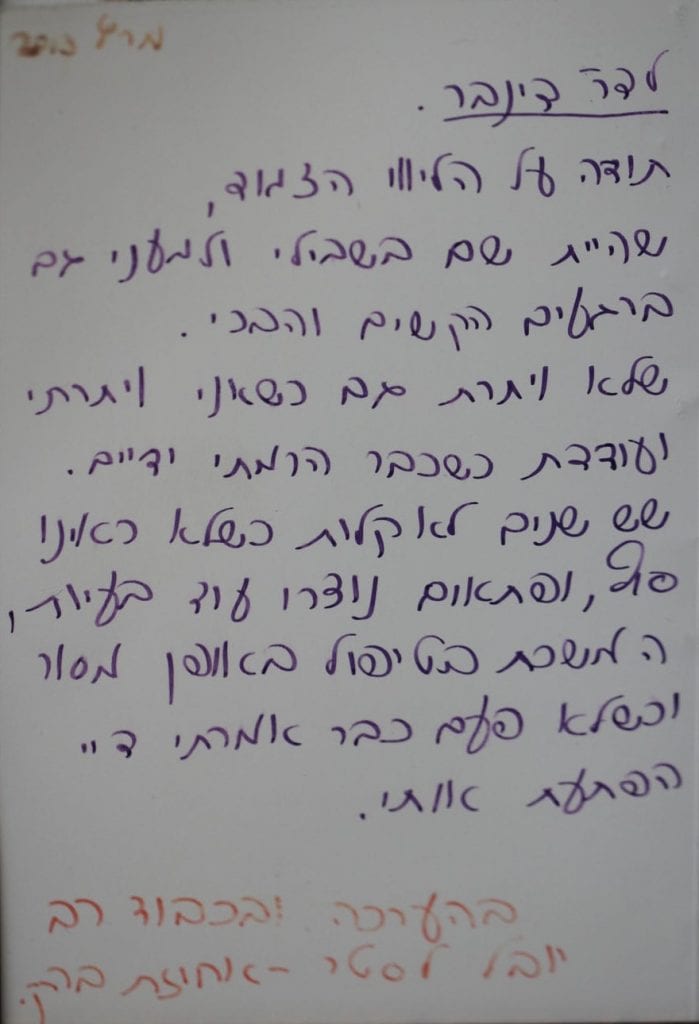 מרץ
לדר' דינבר.
תודה על הליווי הצמוד,
שהיית שם בשבילי ולמעני גם
ברגעים הקשים והבכי.
שלא ויתרת גם כשאני ויתרתי
ועודדת כשכבר הרמתי ידיים.
שש שנים לא קלות כשלא ראינו
סוף, ופתאום נוצרו עוד בעיות,
המשכת בטיפול באופן מסור
וכשלא פעם כבר אמרתי די"
הפתעת אותי.
בהערכה ובכבוד רב
יובל לסטר - אחוזת ברק.